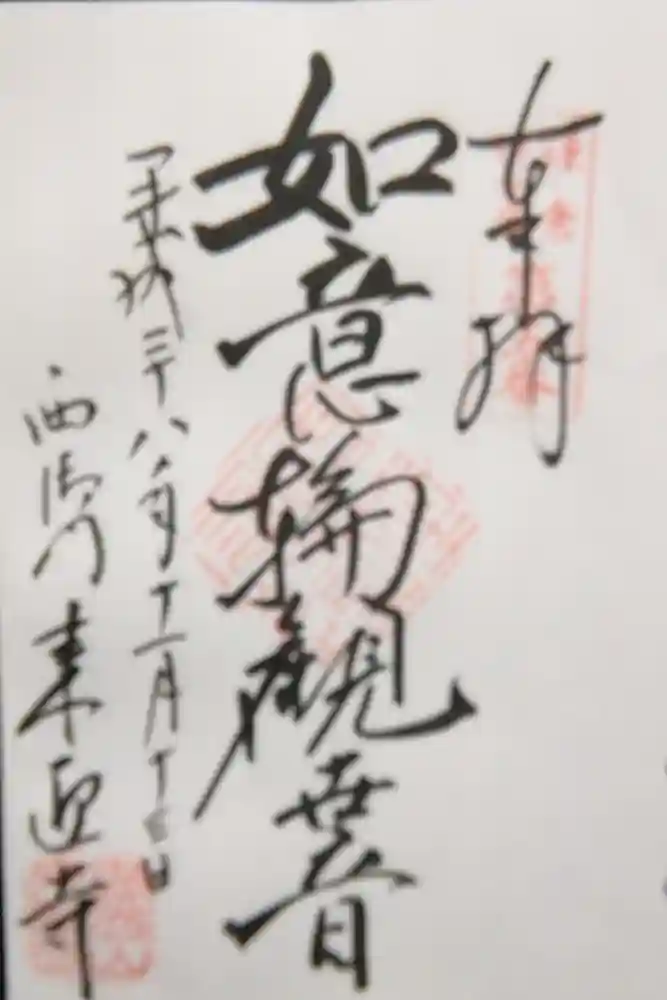 奉拝
如意輪観世音
平成二十八年十一月十三日
西御門 来迎寺